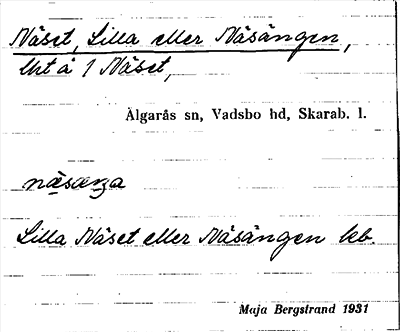 Näset, Lilla eller Näsängen,
Urt å 1 Näset,
Älgarås sn, Vadsbo hd, Skarab. l.
Lilla Näset eller Näsängen kb.
Maja Bergstrand 1931